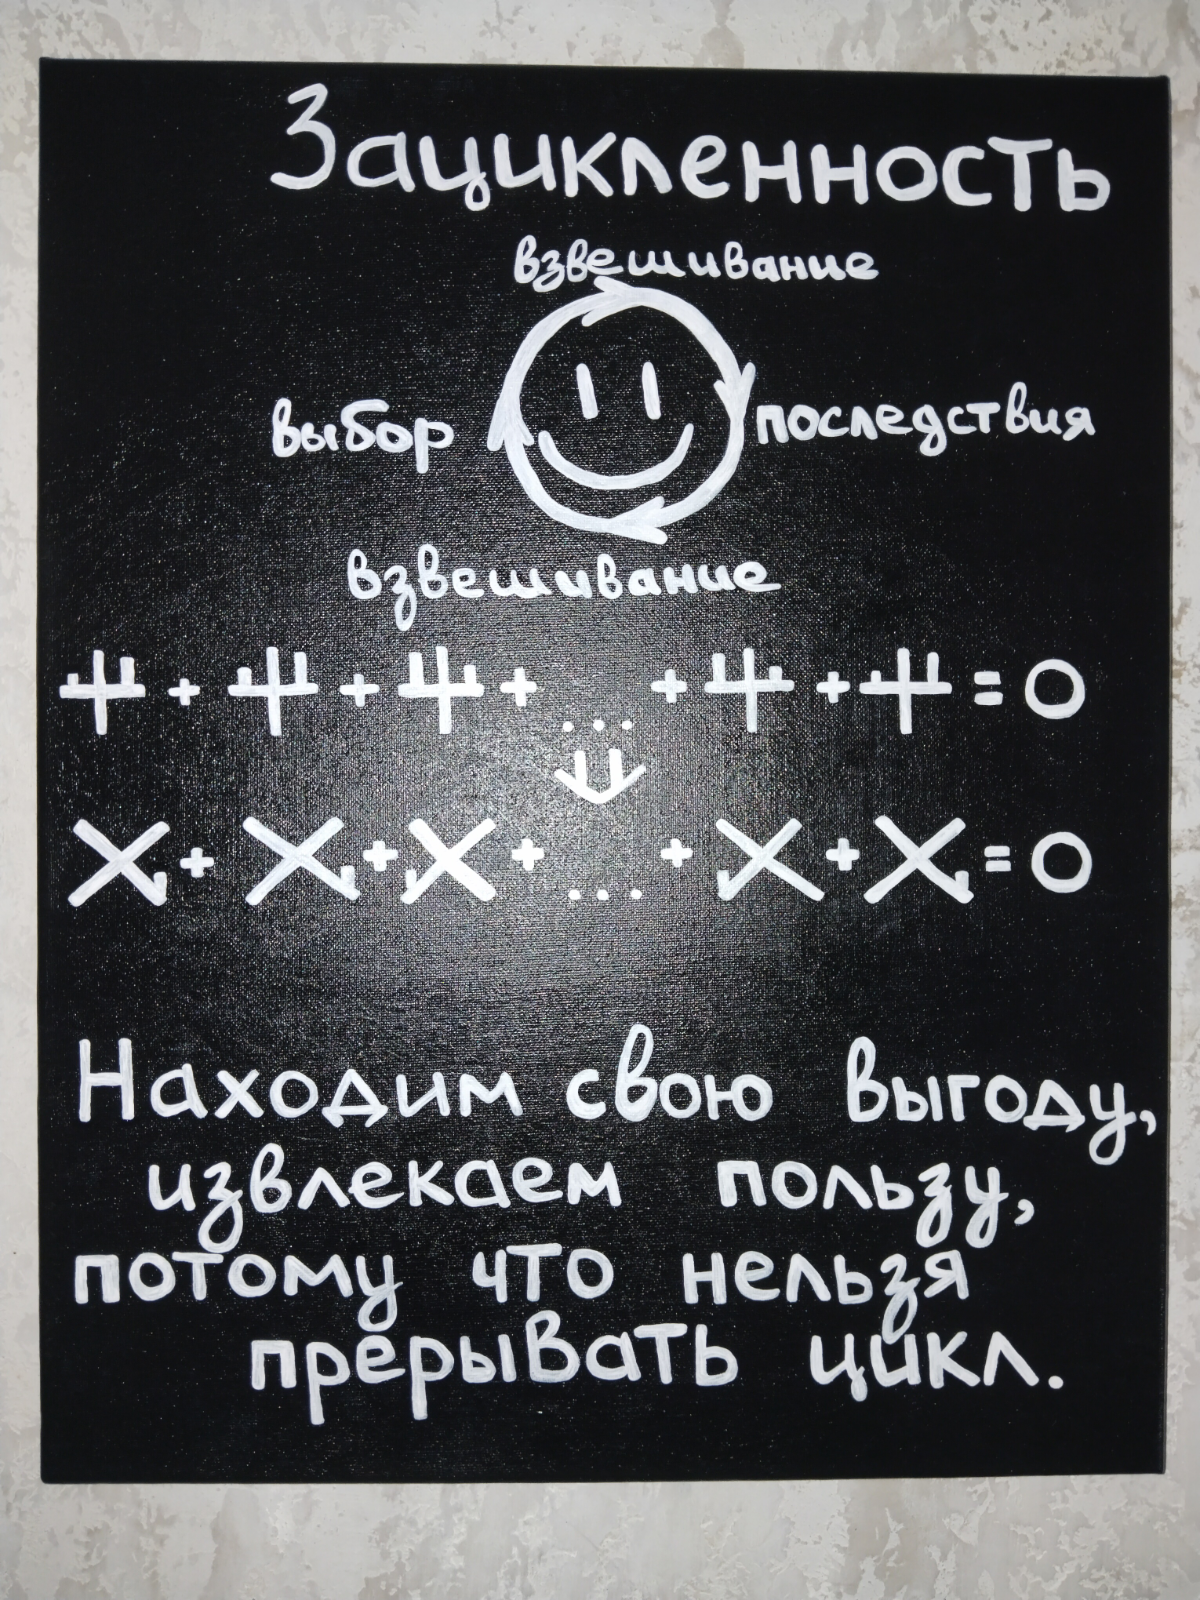 Зацикленность
взвешивание
выбор
последствия
взвешивание
+ + + ... + + = 0
+ + + ... + + = 0
Находим свою выгоду,
извлекаем пользу,
потому что нельзя
прерывать цикл.